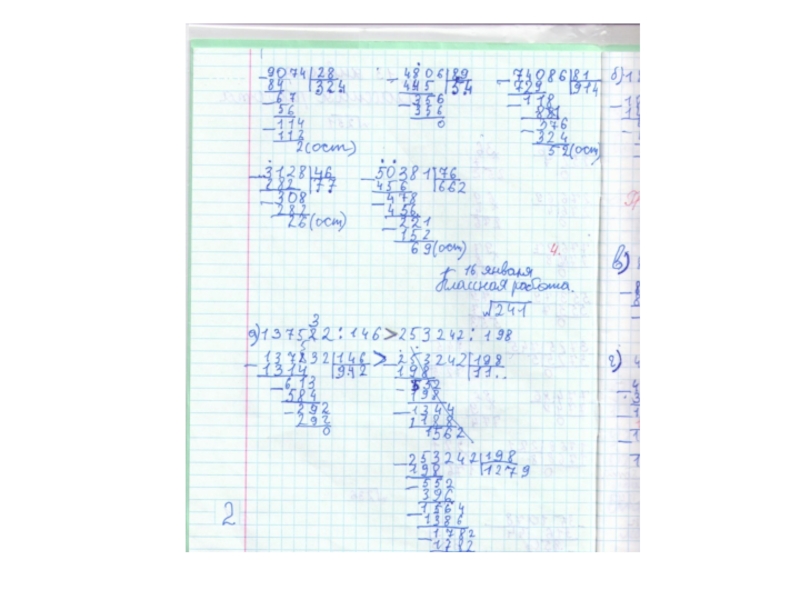 9074|28
84 324
67
56
114
112
2(ост)
4806|89
445 54
356
356
0
74086|81
729 914
118
81
376
324
52(ост)
б)
3128|46
282 77
308
282
26(ост)
50381|76
456 662
478
456
221
152
69(ост)
4.
16 января
Классная работа.
√241
в)
137532:146>253242:198
137532|146 >
1314 942
613
584
292
292
0
253242|198
198 11..
552
198
1344
1188
1562
г)
253242|198
198 1279
552
396
1564
1386
1782
1782
2